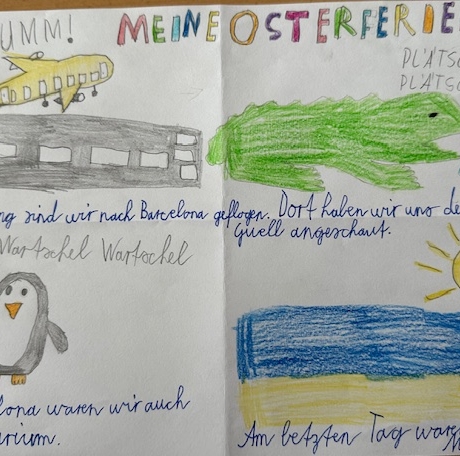 UMM!
MEINE OSTERFERIE
PLÄTSC
PLÄTSC
ng sind wir nach Barcelona geflogen.
Dort haben wir uns de
Guell angeschaut.
Wartschel Wartschel
lona waren wir auch
rium.
Am letzten Tag